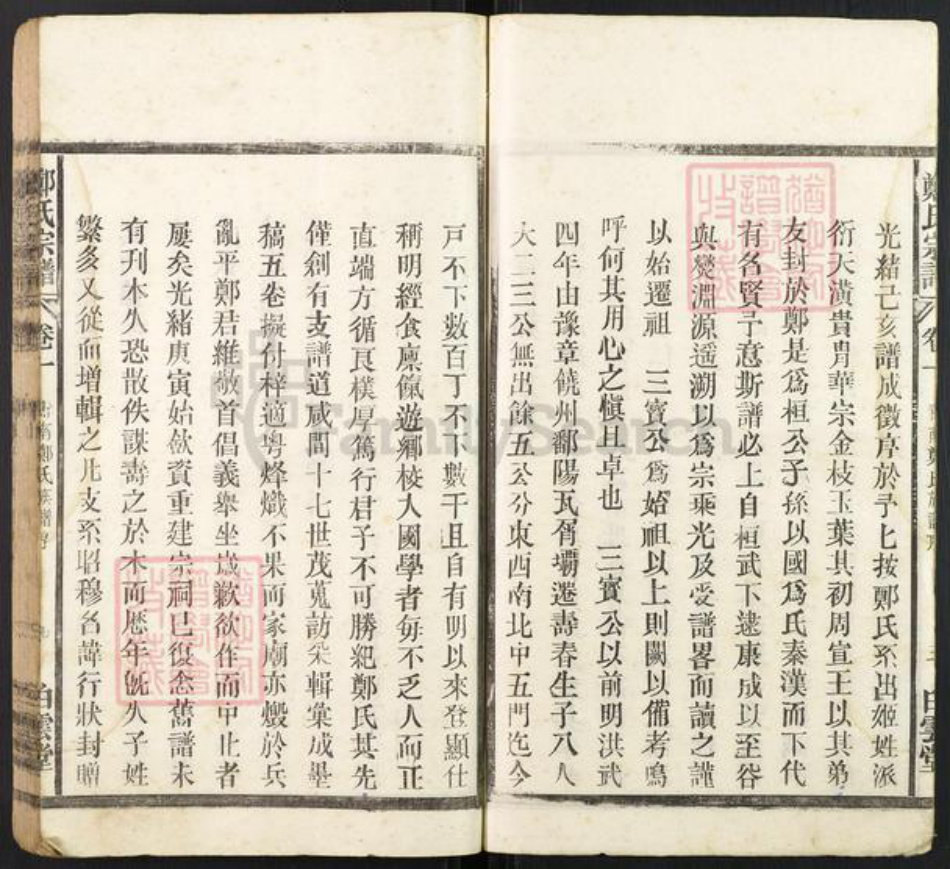 鄭氏宗譜
卷一
白雲堂
光緒己亥譜成徵序於予匕按鄭氏系出姬姓派
衍天潢貴胄華宗金枝玉葉其初周宣王以其弟
友封於鄭是爲桓公子孫以國爲氏秦漢而下代
有名賢予意斯譜必上自桓武下逮康成以至谷
與夔淵源遥溯以爲宗乘光及受譜畧而讀之謹
以始遷祖 三寳公爲始祖以上則闕以備考鳴
呼何其用心之愼且卓也 三寳公以前明洪武
四年由豫章饒州鄱陽瓦屑壩遷壽春生子八人
大二三公無出餘五公分東西南北中五門迄今
戸不下数百丁不下數千且自有明以來登顯仕
稱明經食廩餼遊鄉校入國學者毎不乏人而正
直端方循良樸厚篤行君子不可勝紀鄭氏其先
僅創有支譜道咸間十七世茂蒐訪采輯彙成墨
稿五卷擬付梓適粤烽熾不果而家廟亦燬於兵
亂平鄭君維敬首倡義舉坐歲歉欲作而中止者
屡矣光緒庚寅始斂資重建宗祠已復念舊譜未
有刊本久恐散佚謀壽之於木而歴年旣久子姓
繁多又從而增輯之凡支系昭穆名諱行狀封贈
鄭氏宗譜
卷一
白雲堂
FamilySearch